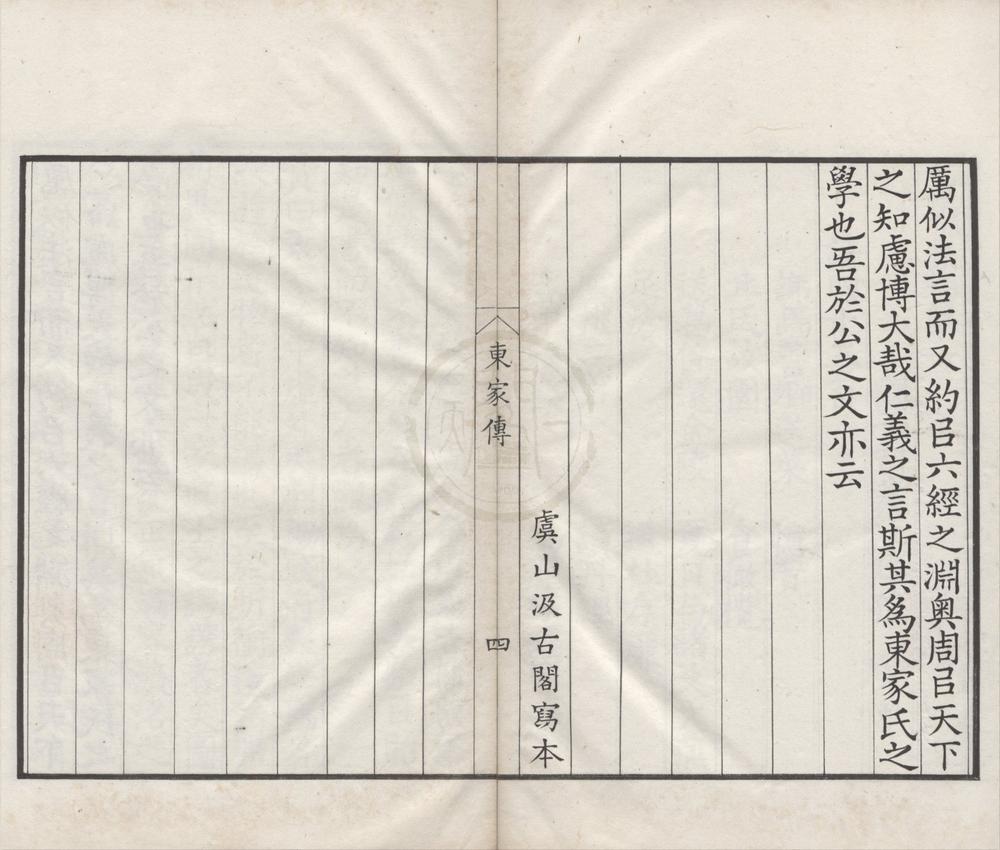 厲似法言而又約㠯六經之淵奥周㠯天下
之知慮博大哉仁義之言斯其爲東家氏之
學也吾於公之文亦云
虞山汲古閣寫本
東家傳
四